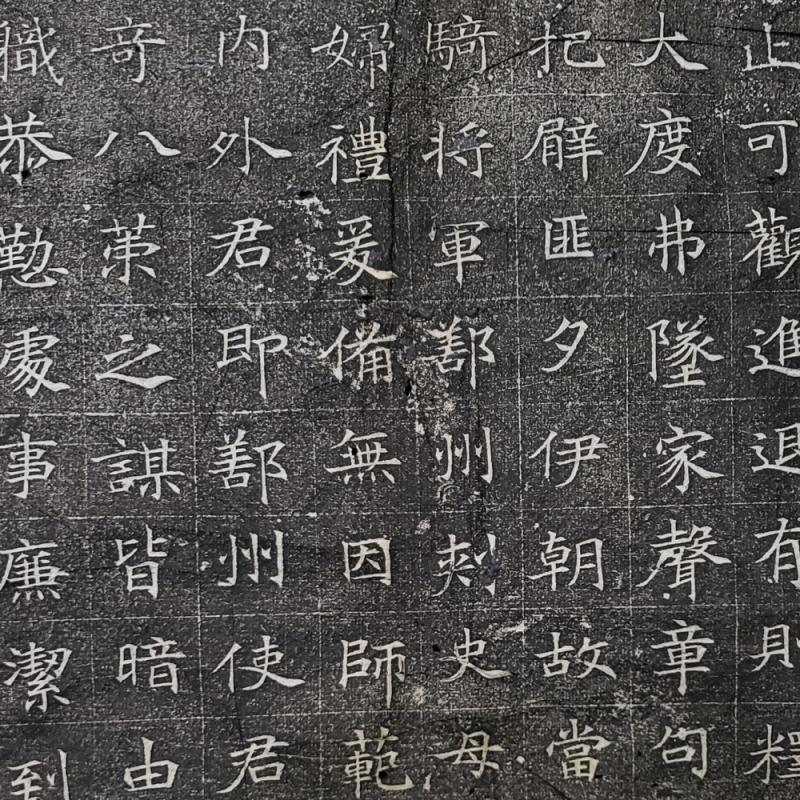 止可觀進退有則釋
大度弗墜家聲章句
把臂匪夕伊朝故當
騎將軍鄯州刾史母
婦禮爰備無因師範
内外君即鄯州使君
奇八策之謀皆暗由
職恭懃處事廉潔到